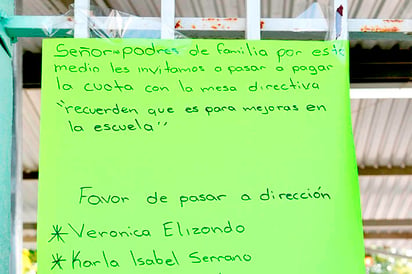 Señores padres de familia por este
medio les invitamos a pasar a pagar
la cuota con la mesa directiva
"recuerden que es para mejoras en
la escuela"
Favor de pasar a dirección
*Veronica Elizondo
*Karla Isabel Serrano